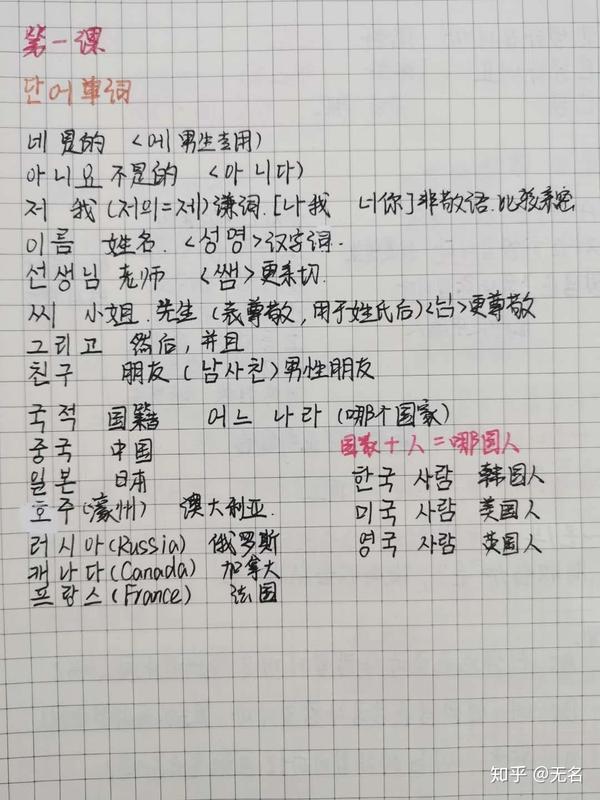 第一课
단어单词
네 是的 <예 男生专用)
아니요 不是的 <아니다)
저 我 (저의=제)谦词.[나我 너你]非敬语.比较亲密
이름 姓名. <성명>汉字词.
선생님 老师 <쌤>更亲切.
씨 小姐.先生 (表尊敬,用于姓氏后)<님>更尊敬
그리고 然后,并且
친구 朋友 (남사친)男性朋友
국적 国籍 어느 나라 (哪个国家)
중국 中国 国家+人=哪国人
일본 日本 한국 사람 韩国人
호주(濠州) 澳大利亚. 미국 사람 美国人
러시아(Russia) 俄罗斯 영국 사람 英国人
캐나다(Canada) 加拿大
프랑스(France) 法国
知乎 @无名